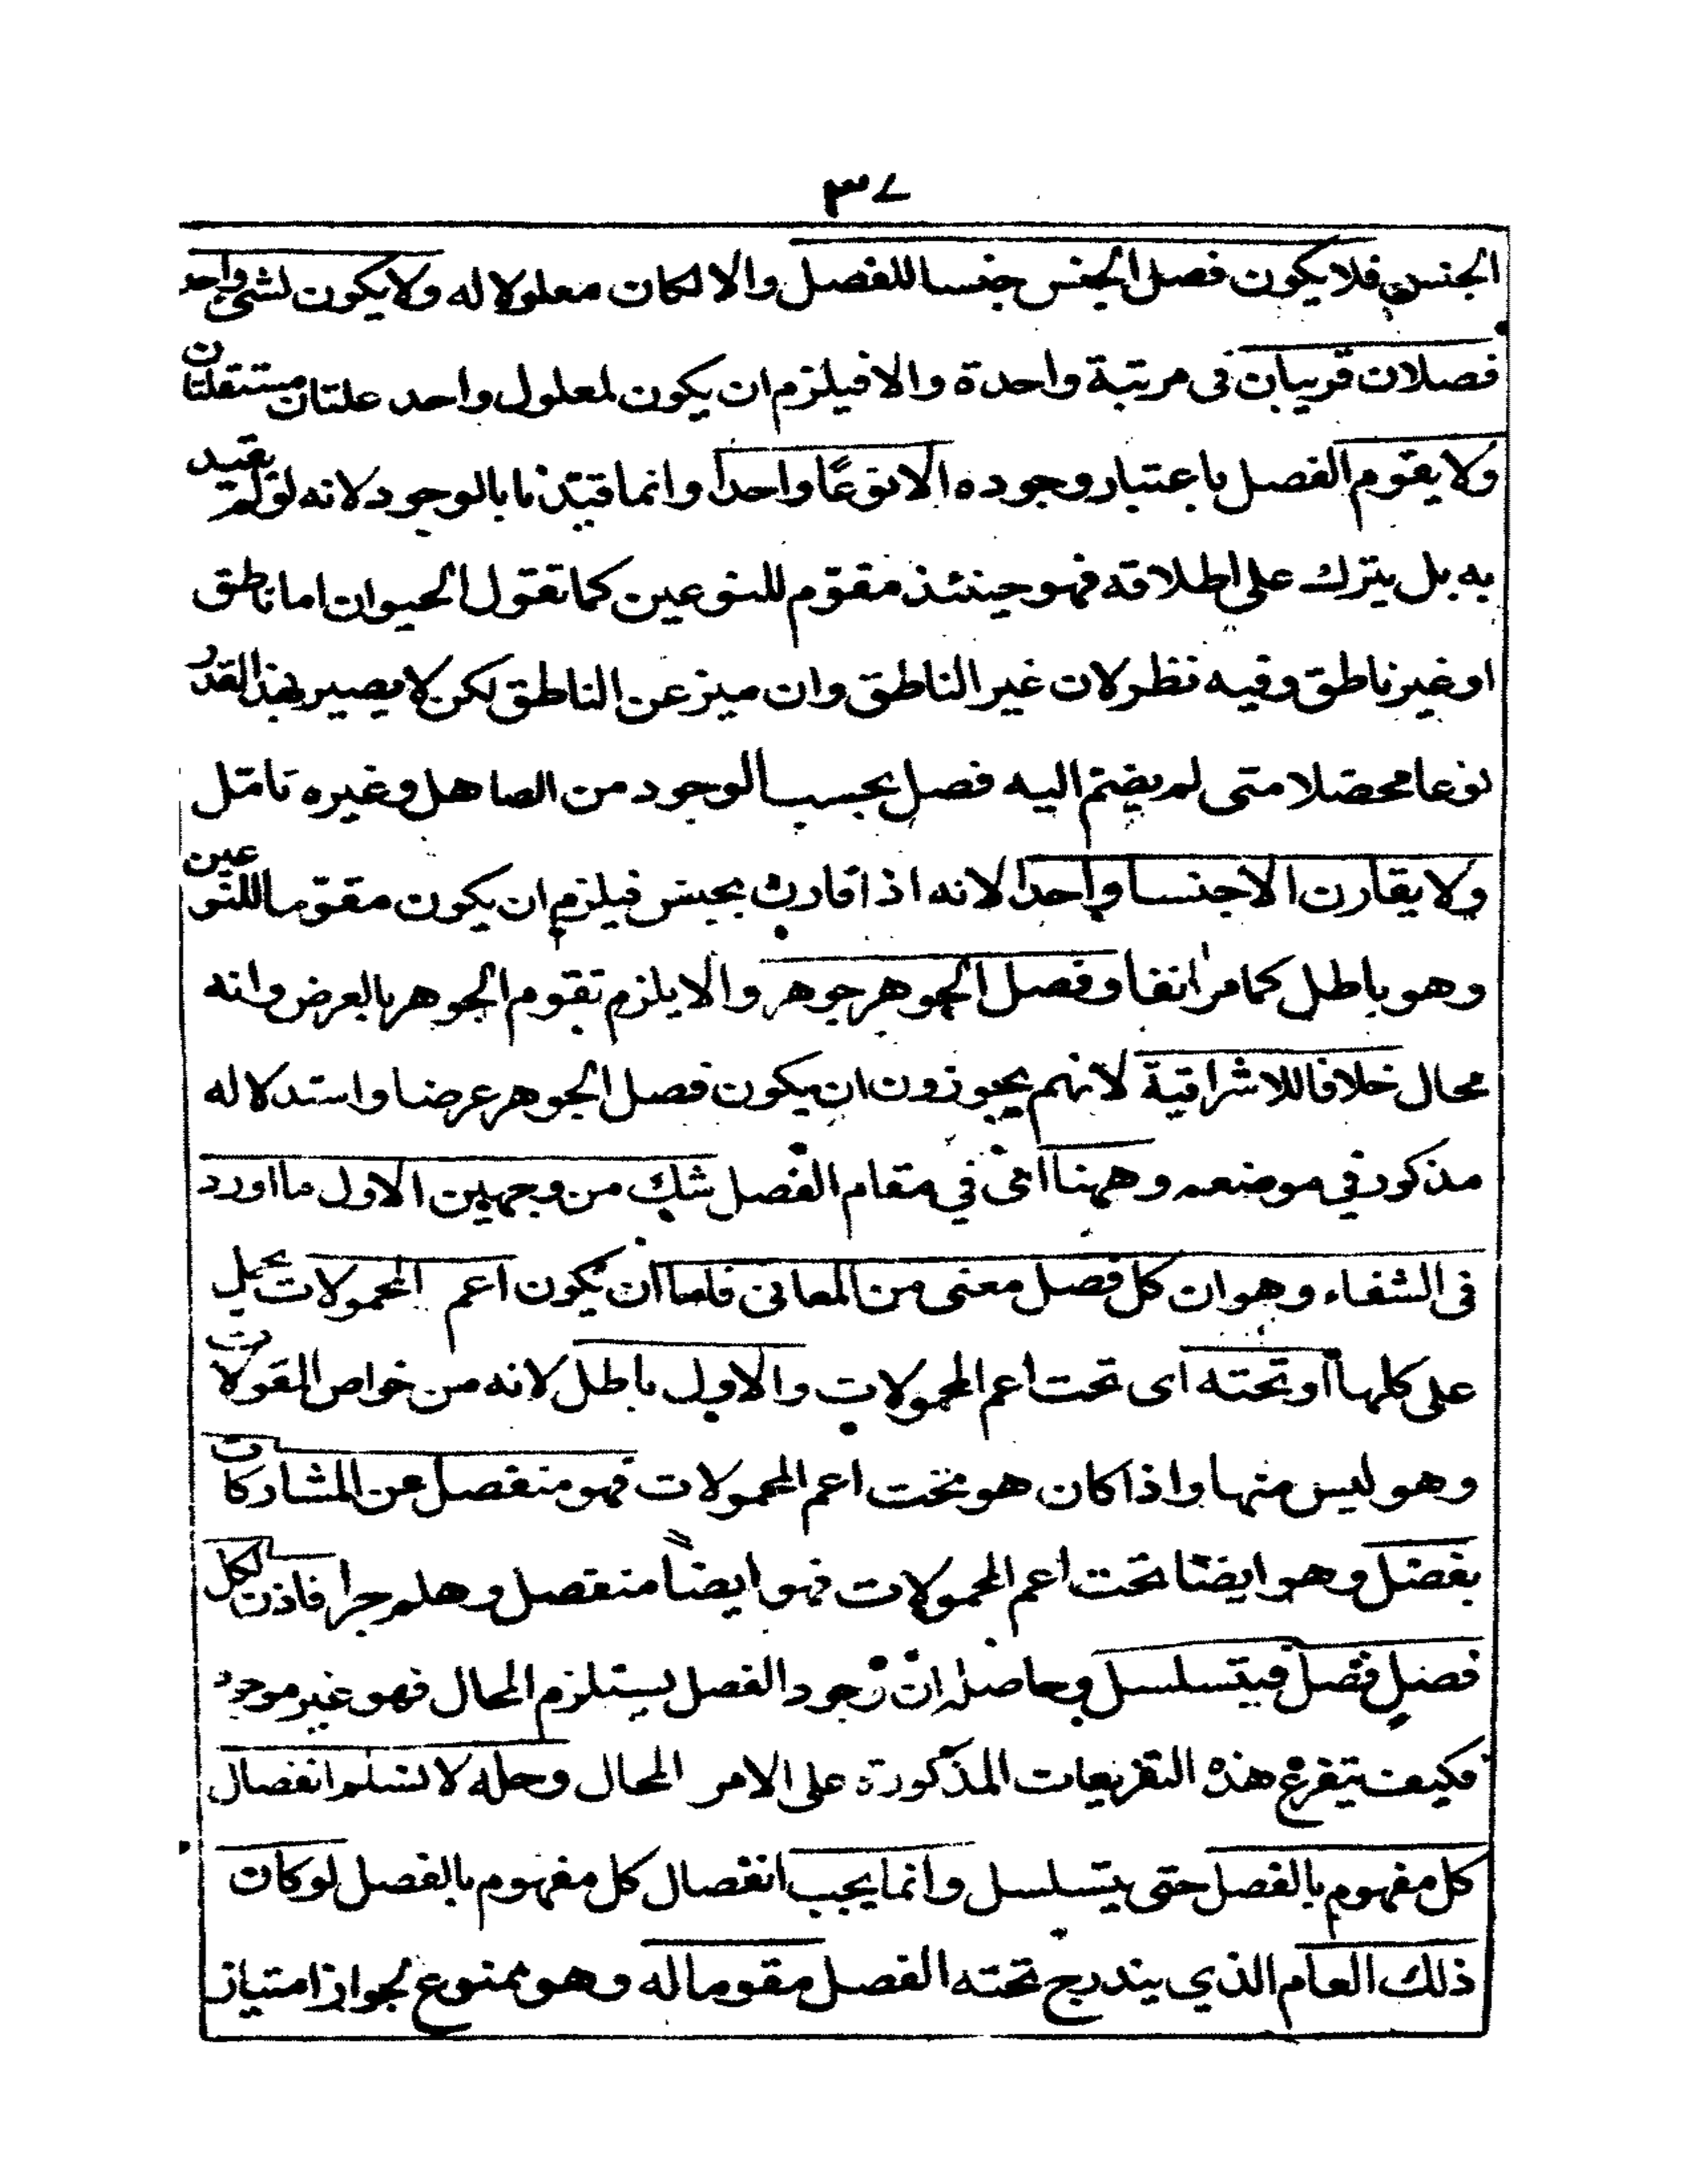 ٣٧
الجنس فلا يكون فصل الجنس جنسا للفصل والا لكان معلولا له ولا يكون لشئ واحد
فصلان قريبان فى مرتبة واحدة والا فيلزم ان يكون لمعلول واحد علتان مستقلتان
ولا يقوم الفصل باعتبار وجوده الا نوعًا واحدا وانما قيّدنا بالوجود لانه لو لم يقيد
به بل يترك على اطلاقه فهو حينئذ مقوّم للنوعين كما تقول الحيوان اما ناطق
او غير ناطق وفيه نظر لان غير الناطق وان ميز عن الناطق لكن لا يصير بهذا القدر
نوعا محصّلا متى لم يضمّ اليه فصل بحسب الوجود من الصاهل وغيره تامّل
ولا يقارن الا جنسا واحدا لانه اذا قارن بجنس فيلزم ان يكون مقوّما للنوعين
وهو باطل كما مر انفا وفصل الجوهر جوهر والا يلزم تقوم الجوهر بالعرض وانه
محال خلافا للاشراقية لانهم يجوزون ان يكون فصل الجوهر عرضا واستدلاله
مذكور في موضعه وههنا اى في مقام الفصل شك من وجهين الاول ما اورد
فى الشفاء وهو ان كل فصل معنى من المعانى فاما ان يكون اعم المحمولات يحمل
على كلها او تحته اى تحت اعم المحمولات والاول باطل لانه من خواص المقولات
وهو ليس منها واذا كان هو تحت اعم المحمولات فهو منفصل عن المشاركات
بفصل وهو ايضا تحت اعم المحمولات فهو ايضاً منفصل وهلم جرا فاذن لكل
فصل فصل فيتسلسل وحاصله ان وجود الفصل يستلزم المحال فهو غير موجود
فكيف يتفرع هذه التفريعات المذكورة على الامر المحال وحله لا نسلم انفصال
كل مفهوم بالفصل حتى يتسلسل وانما يجب انفصال كل مفهوم بالفصل لو كان
ذلك العام الذي يندرج تحته الفصل مقوما له وهو ممنوع لجواز امتياز